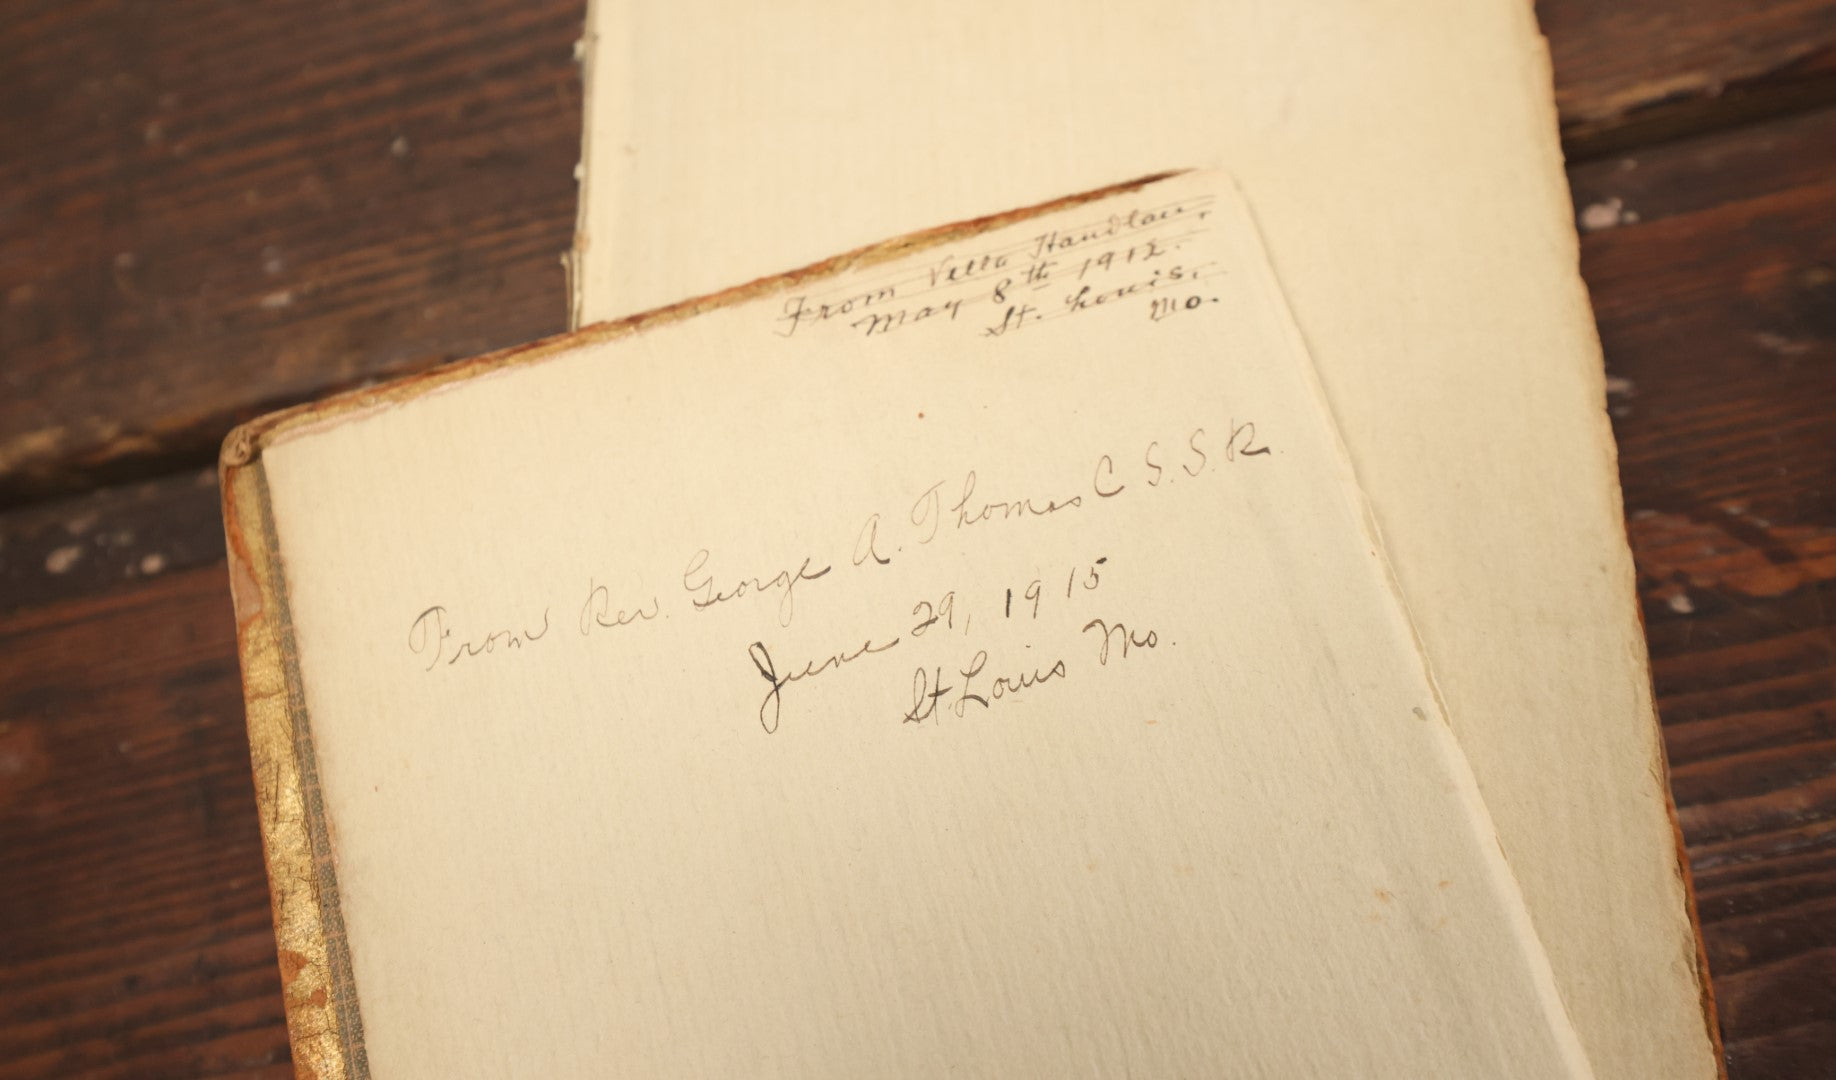 From Vella Handlan.
May 8th 1912.
St. Louis.
Mo.
From Rev. George A. Thomas C S. S. R.
June 29, 1915
St. Louis Mo.